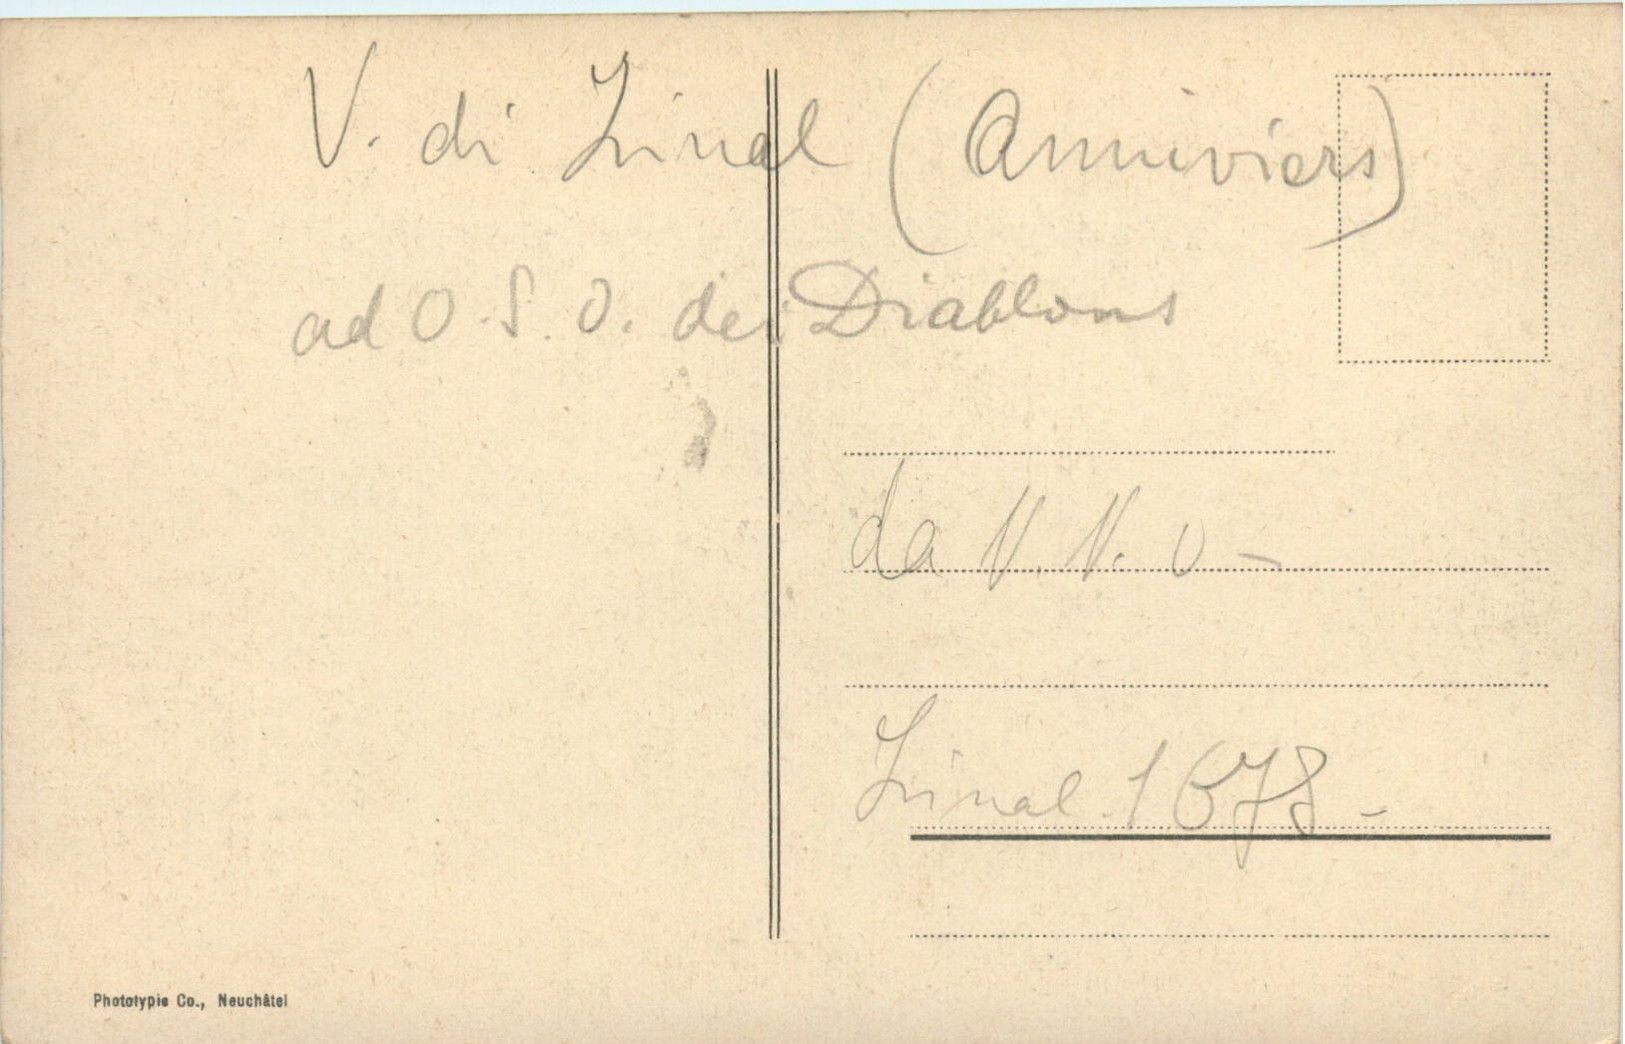 V. di Zinal (Anniviers)
ad O.S.O. dei Diablons
da N.N.O –
Zinal 1678 –
Phototypie Co., Neuchâtel